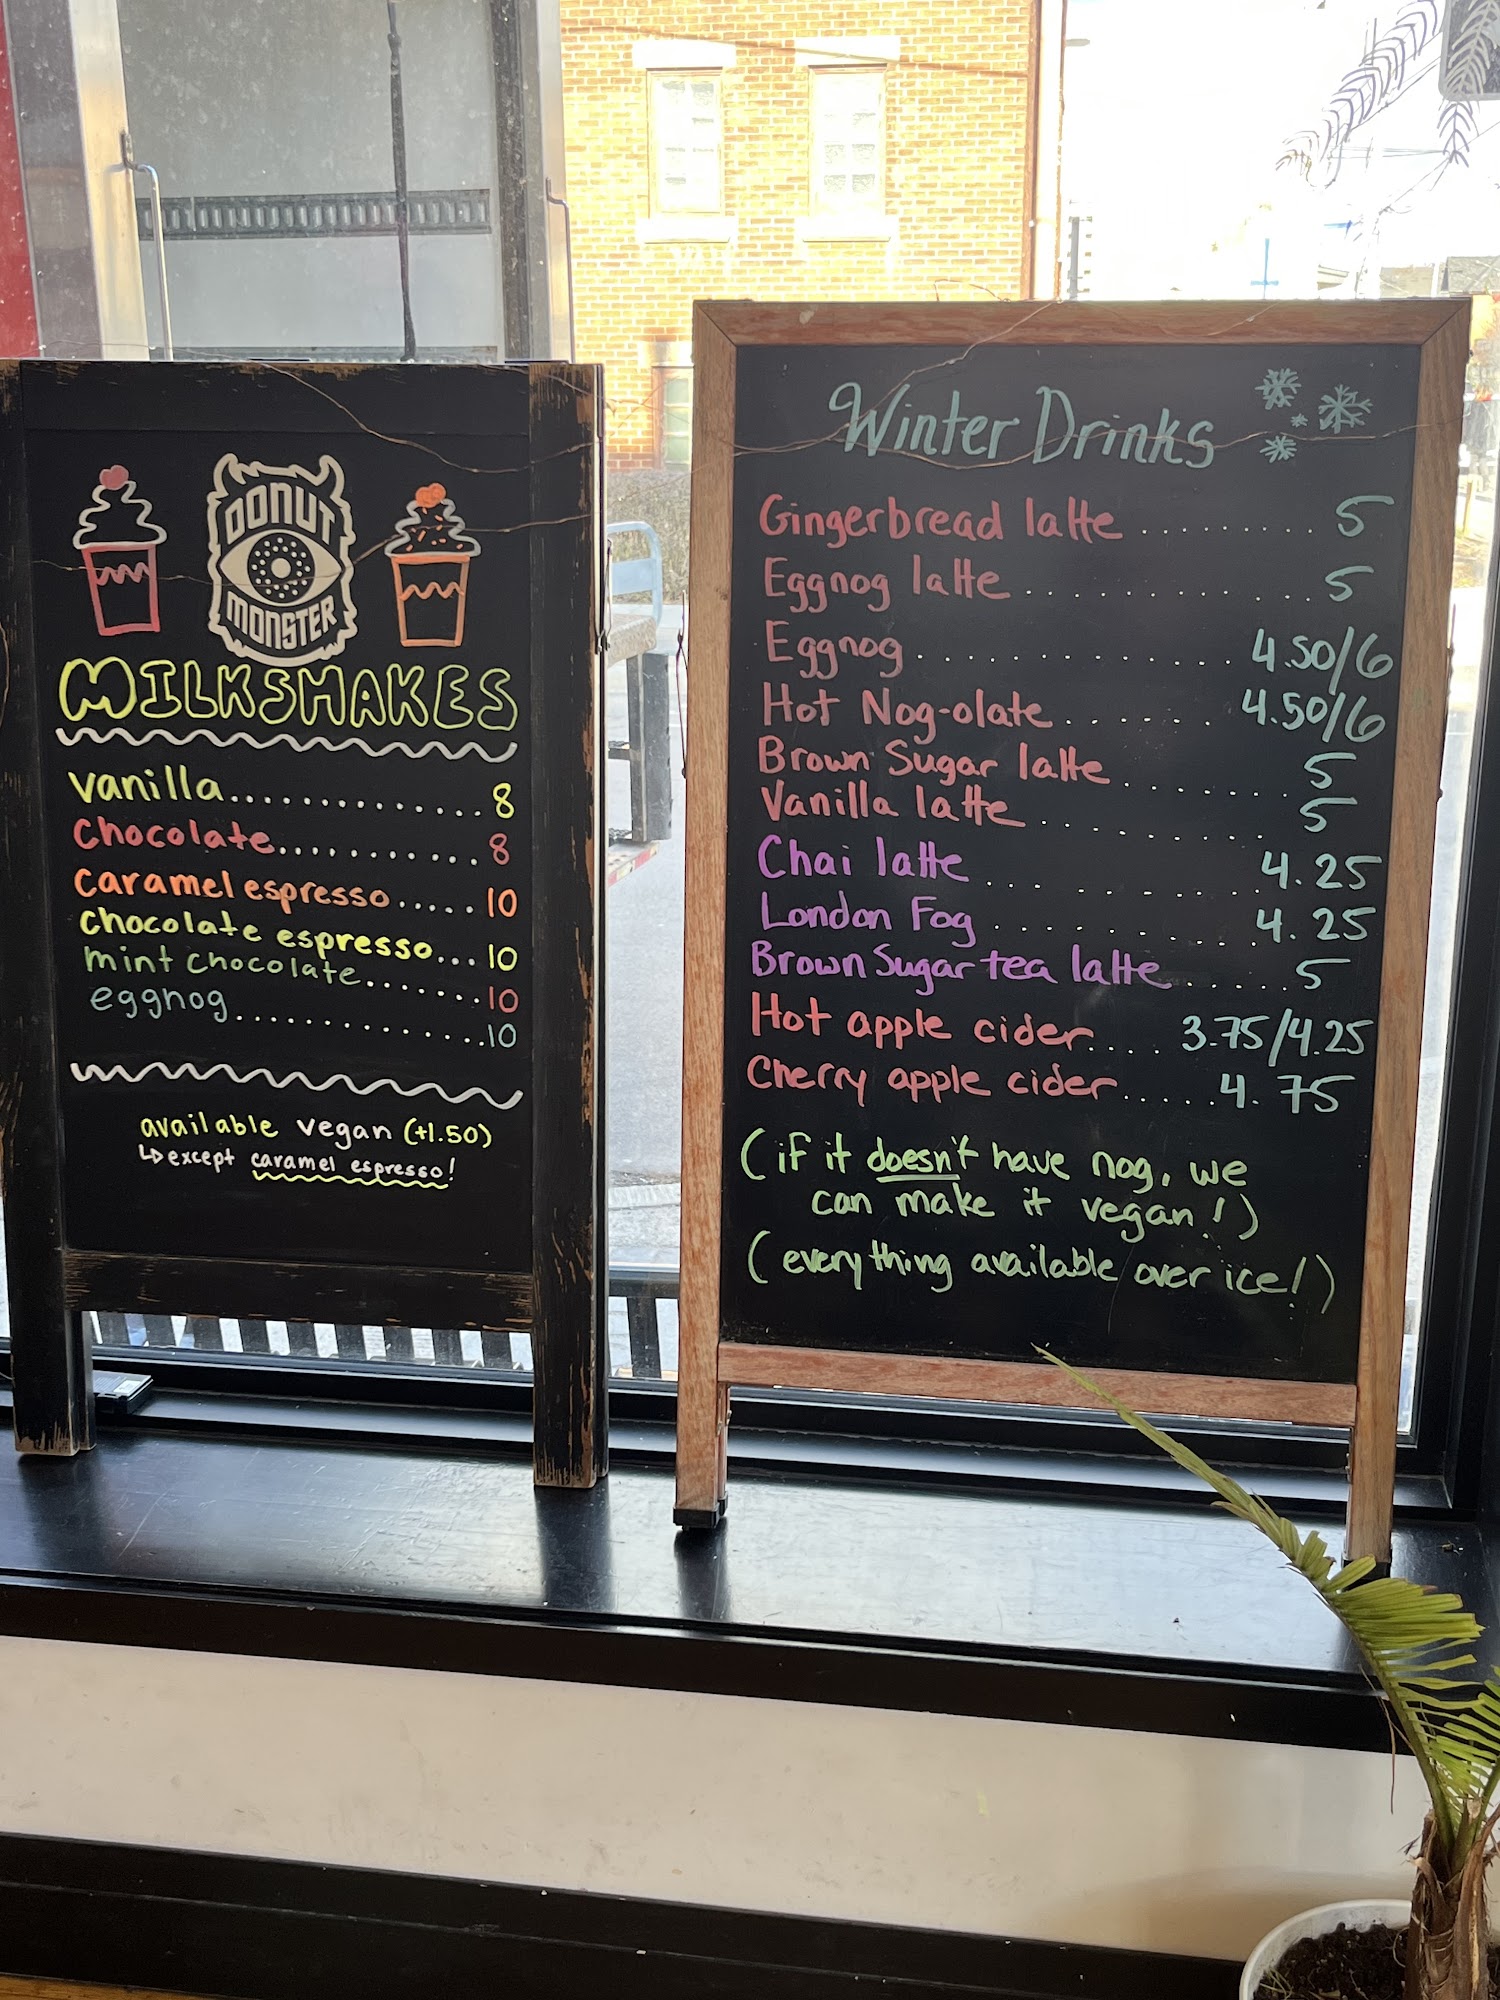 DONUT
MONSTER
MILKSHAKES
vanilla.............. 8
chocolate........... 8
caramel espresso..... 10
chocolate espresso... 10
mint chocolate....... 10
eggnog.............. 10
available vegan (+1.50)
↳ except caramel espresso!
Winter Drinks
Gingerbread latte ......... 5
Eggnog latte ............. 5
Eggnog .............. 4.50/6
Hot Nog-olate ....... 4.50/6
Brown Sugar latte ....... 5
Vanilla latte ......... 5
Chai latte .......... 4.25
London Fog .......... 4.25
Brown Sugar tea latte ..... 5
Hot apple cider .... 3.75/4.25
Cherry apple cider ..... 4.75
(if it doesn't have nog, we
can make it vegan!)
(everything available over ice!)